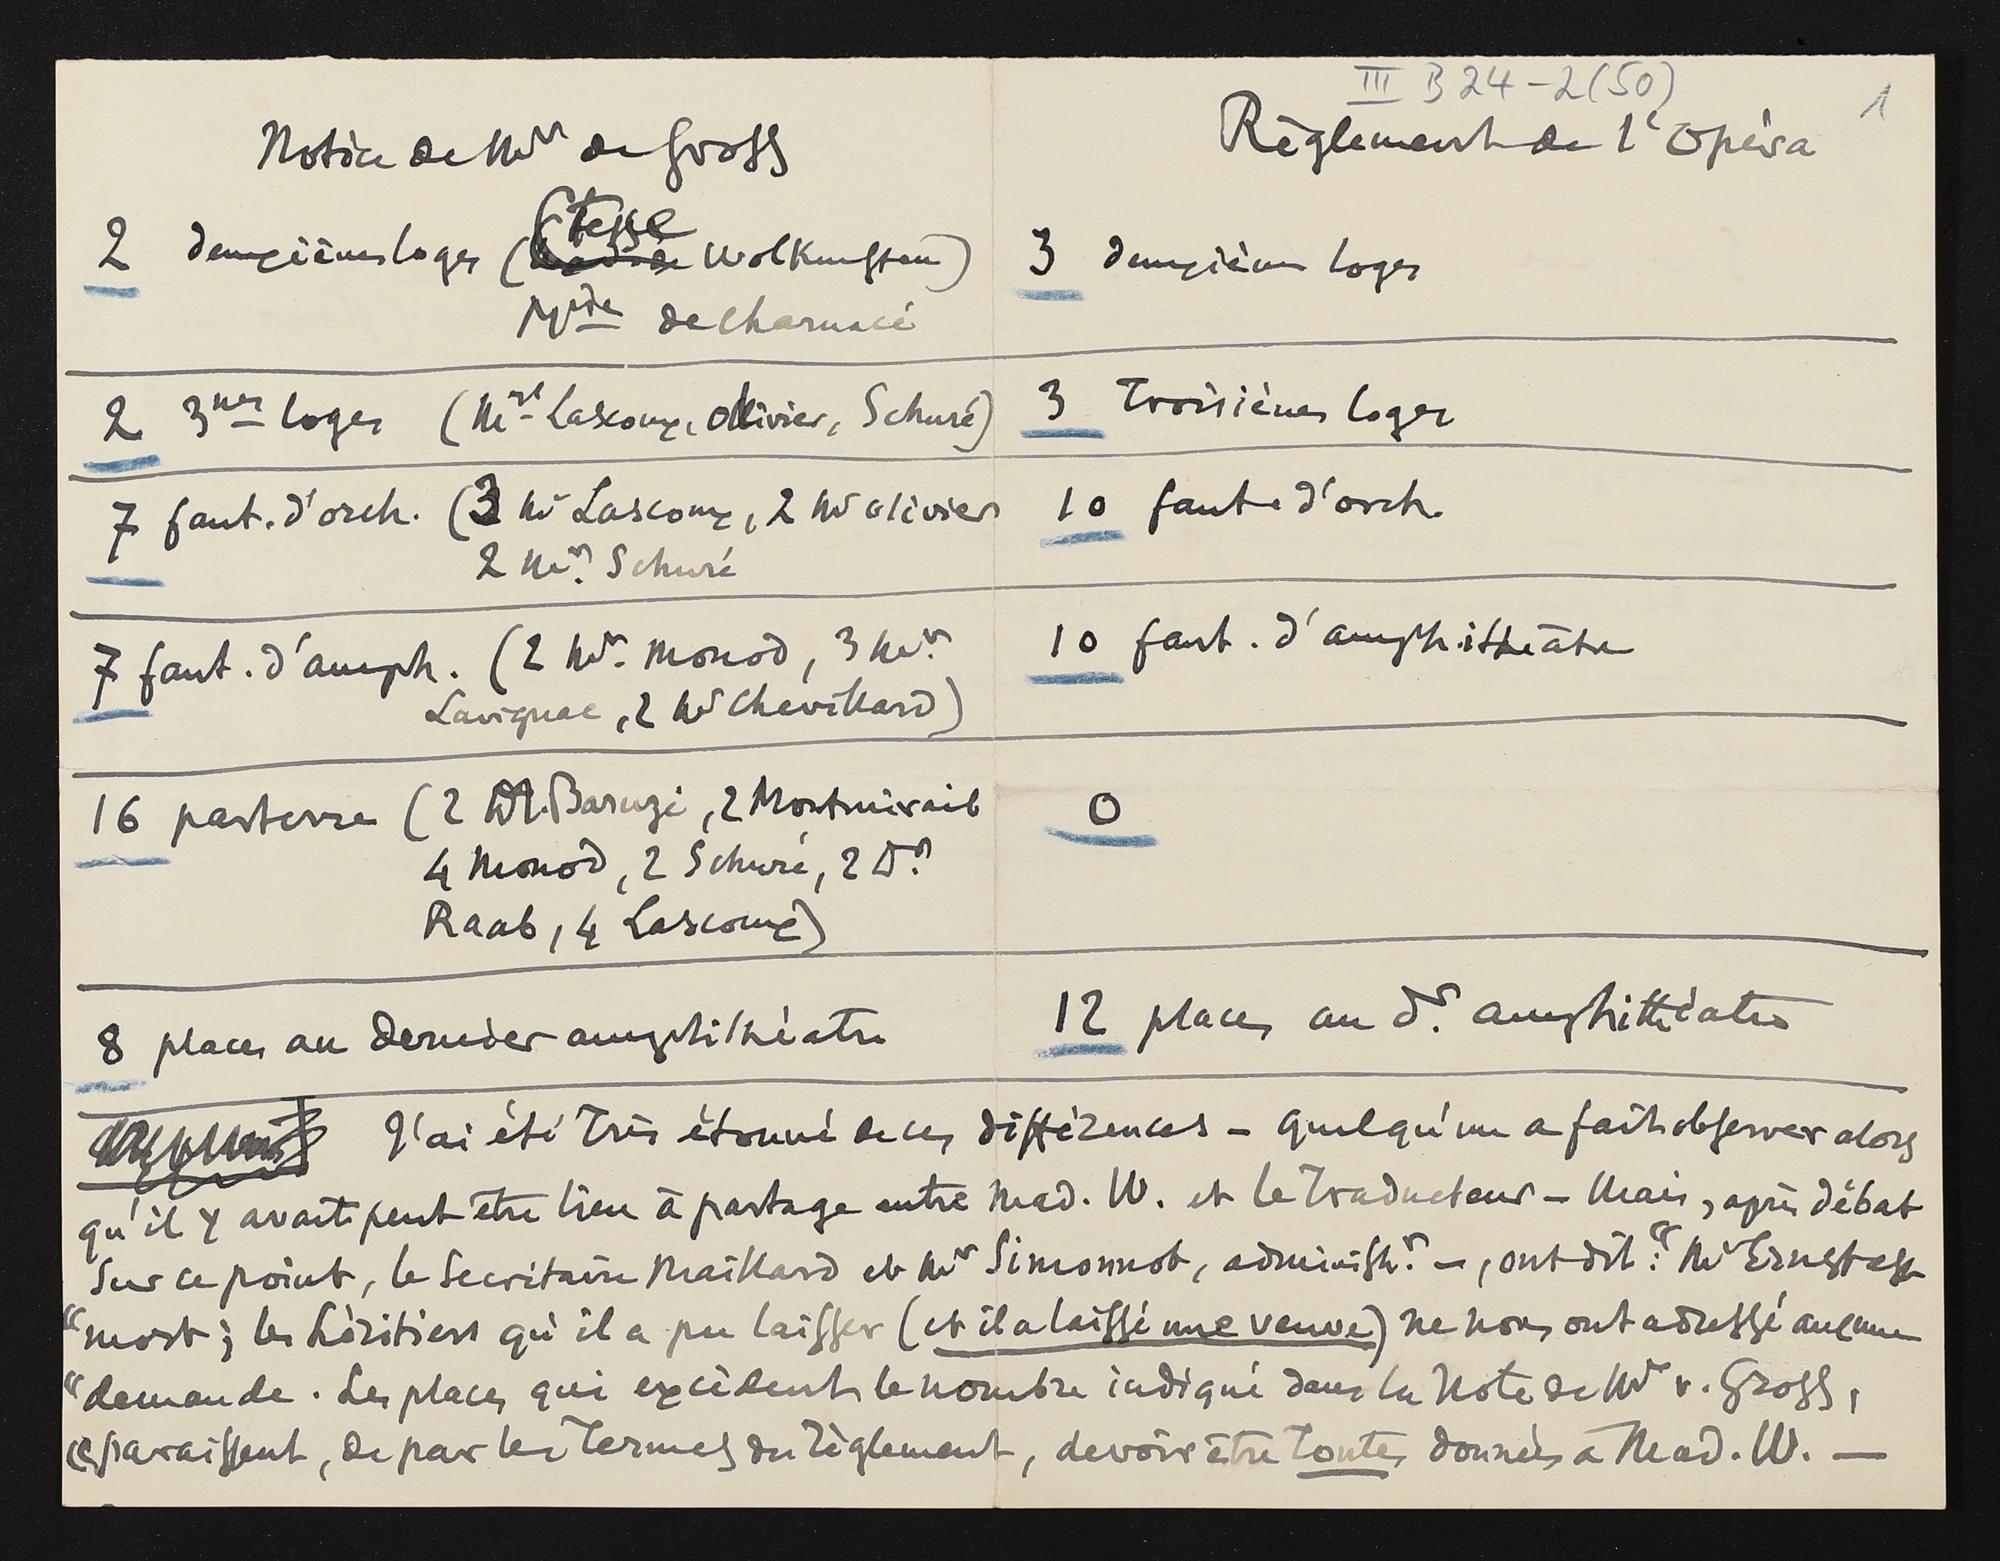 III B 24-2(50)
1
Notice de Mr de Gross
Règlement de l'Opéra
2 deuxièmes loges (Ctesse Wolkenstein)
Mise de Charnacé
3 deuxièmes loges
2 3mes loges (Mrs Lascoux, Ollivier, Schuré)
3 Troisièmes loges
7 faut. d'orch. (3 Mr Lascoux, 2 Mr Olivier
2 Mr Schuré
10 faut. d'orch.
7 faut. d'amph. (2 Mr. Monod, 3 Mr.
Lavignac, 2 Mr Chevillard)
10 faut. d'amphithéâtre
16 parterre (2 Dr. Baruzi, 2 Montmirail
4 Monod, 2 Schuré, 2 Dr
Raab, 4 Lascoux)
0
8 places au dernier amphithéatre
12 places au dr. amphithéatre
J'ai été très étonné de ces différences – quelqu'un a fait observer alors
qu'il y avait peut être lieu à partage entre Mad. W. et le traducteur – Mais, après débat
sur ce point, le Secrétaire Maillard et Mr Simonnot, administr. –, ont dit: "Mr Ernst est
"mort; les héritiers qu'il a pu laisser (et il a laissé une veuve) ne nous ont adressé aucune
"demande. Les places qui excèdent le nombre indiqué dans la Note de Mr v. Gross,
"paraissent, de par les termes du règlement, devoir être toutes données à Mad. W. –